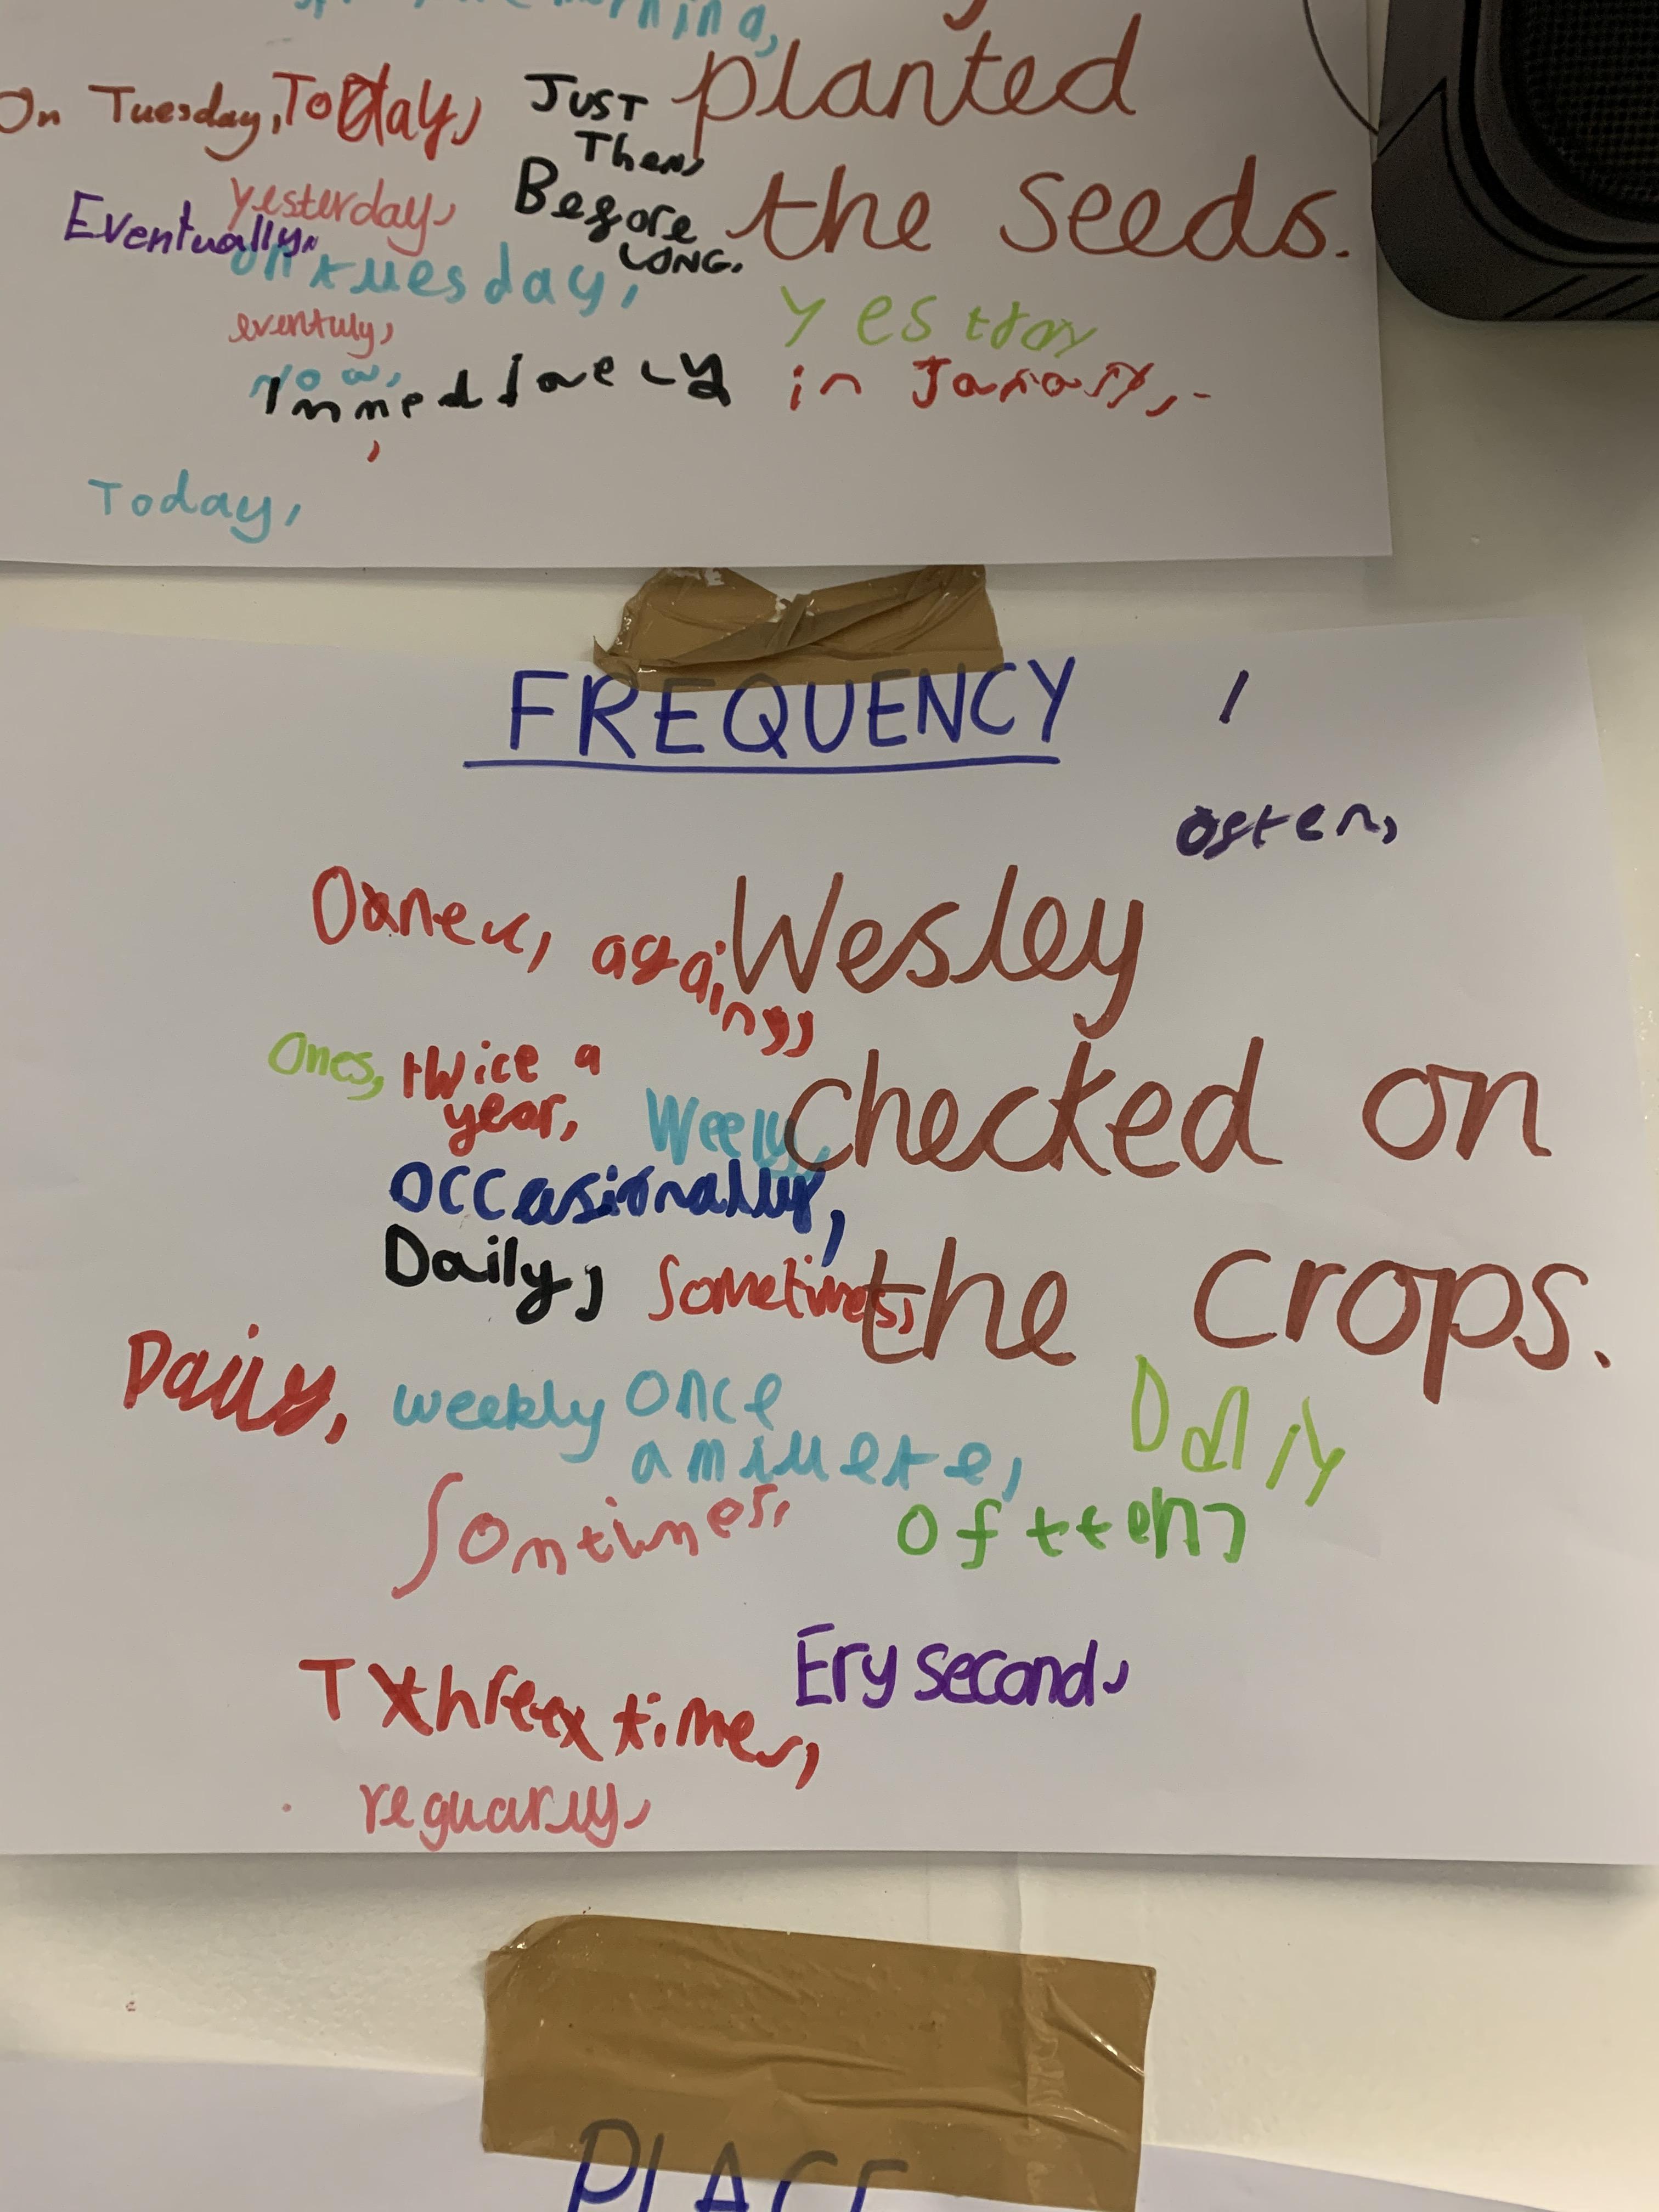 planted
On Tuesday, Today, Just
Then,
the seeds.
yesterday, Before
Eventually, LONG.
on tuesday,
eventuly, Yesttay
now,
in Janary,
Today,
FREQUENCY
often,
Wesley
again,
checked on
Ones, twice a
year, Weely,
occasionally,
the crops.
Daily, Sometimes,
Daily, weekly once Daily
a miuete,
Somtimes, oftten,
Ery second,
T three times,
reguarly,
PLACE